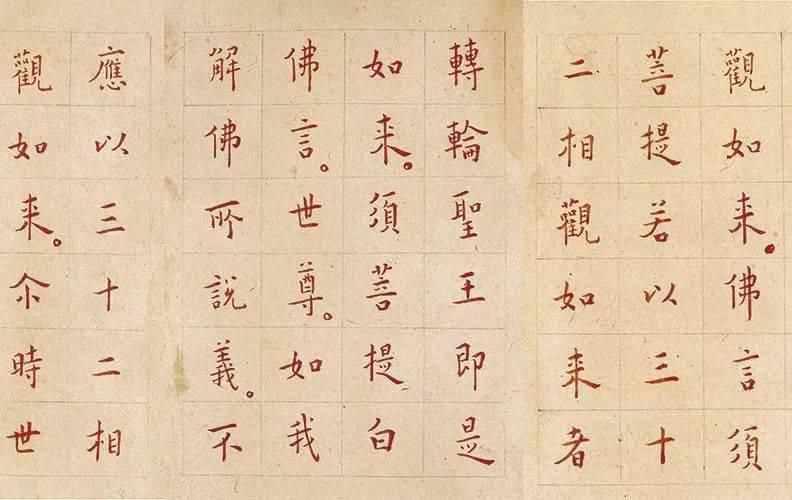 觀如来。佛言須
菩提若以三十
二相觀如来者
轉輪聖王即是
如来。須菩提白
佛言。世尊。如我
解佛所說義。不
應以三十二相
觀如来。尒時世